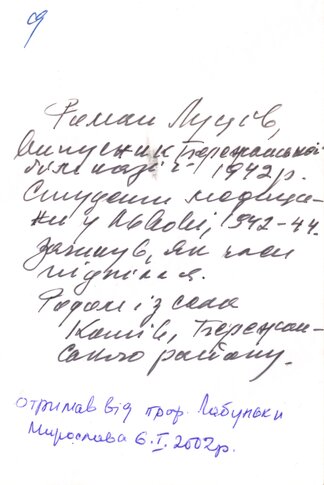 Роман Луців,
випускник Бережанської
гімназії 1942 р.
Студент медици-
ни у Львові, 1942-44.
Загинув, як член
підпілля.
Родом із села
Конів, Бережан-
ського району.
отримав від проф. Лабуньки
Мирослава 6.I.2002р.